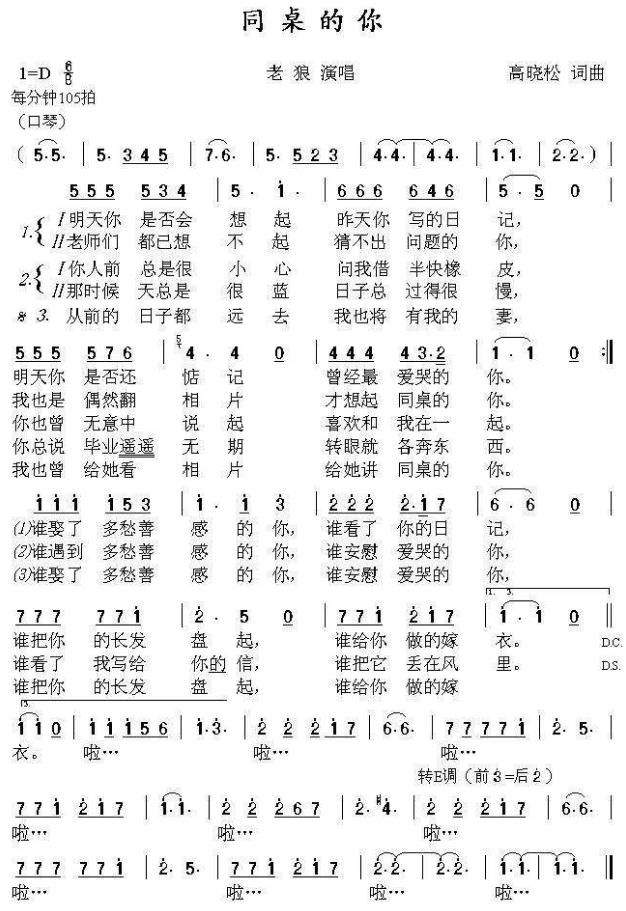 同桌的你
1=D 6/8 老 狼 演唱 高晓松 词曲
每分钟105拍
（口琴）
( 5·5· | 5· 3 4 5 | 7·6· | 5· 5 2 3 | 4·4· | 4·4· | 1·1· | 2·2· ) |
5 5 5 5 3 4 | 5 · 1 · | 6 6 6 6 4 6 | 5 · 5 0 |
1. I 明天你 是否会 想 起 昨天你 写的日 记，
II 老师们 都已想 不 起 猜不出 问题的 你，
2. I 你人前 总是很 小 心 问我借 半快橡 皮，
II 那时候 天总是 很 蓝 日子总 过得很 慢，
3. 从前的 日子都 远 去 我也将 有我的 妻，
5 5 5 5 7 6 | 4 · 4 0 | 4 4 4 4 3·2 | 1 · 1 0 :‖
明天你 是否还 惦 记 曾经最 爱哭的 你。
我也是 偶然翻 相 片 才想起 同桌的 你。
你也曾 无意中 说 起 喜欢和 我在一 起。
你总说 毕业遥遥 无 期 转眼就 各奔东 西。
我也曾 给她看 相 片 给她讲 同桌的 你。
1 1 1 1 5 3 | 1 · 1 3 | 2 2 2 2·1 7 | 6 · 6 0 |
(1)谁娶了 多愁善 感 的 你，谁看了 你的日 记，
(2)谁遇到 多愁善 感 的 你，谁安慰 爱哭的 你，
(3)谁娶了 多愁善 感 的 你，谁安慰 爱哭的 你，
1. 3.
7 7 7 7 7 1 | 2 · 5 0 | 7 7 1 2 1 7 | 1 · 1 0 ‖
谁把你 的长发 盘 起， 谁给你 做的嫁 衣。 D.C.
谁看了 我写给 你的 信， 谁把它 丢在风 里。 D.S.
谁把你 的长发 盘 起， 谁给你 做的嫁
3.
1 1 0 | 1 1 1 5 6 | 1·3· | 2 2 2 1 7 | 6·6· | 7 7 7 7 1 | 2· 5· |
衣。 啦… 啦… 啦…
转E调（前3=后2）
7 7 1 2 1 7 | 1·1· | 2 2 2 6 7 | 2·#4· | 2 2 2 1 7 | 6·6· |
啦… 啦… 啦…
7 7 7 7 7 1 | 2· 5· | 7 7 1 2 1 7 | 2·2· | 2·2· | 1·1· | 1·1· ‖
啦… 啦… 啦… 啦…